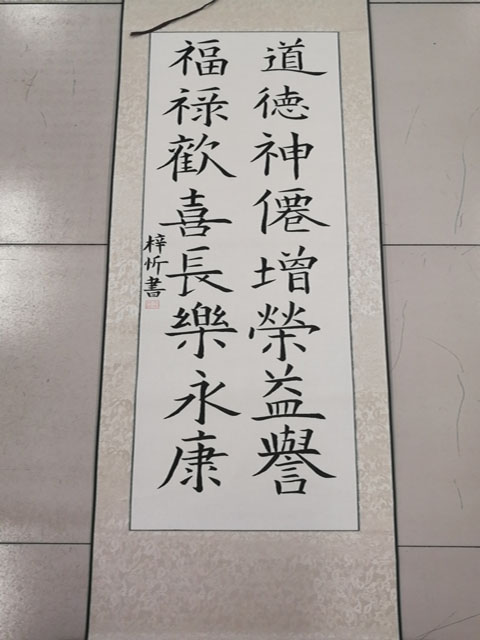 道德神僊增榮益譽
福禄歡喜長樂永康
梓忻書